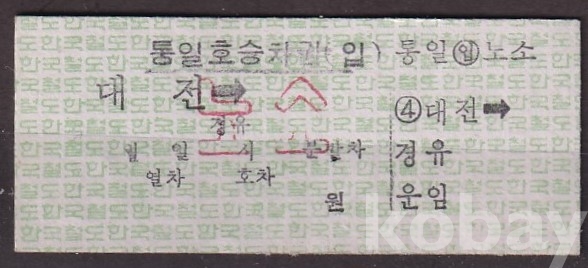 통일호승차권(입) 통일입노소
대 전➡ 노 소
④대전➡
경유 경유
월 일 시 분발차
열차 호차
원 운임
kobay